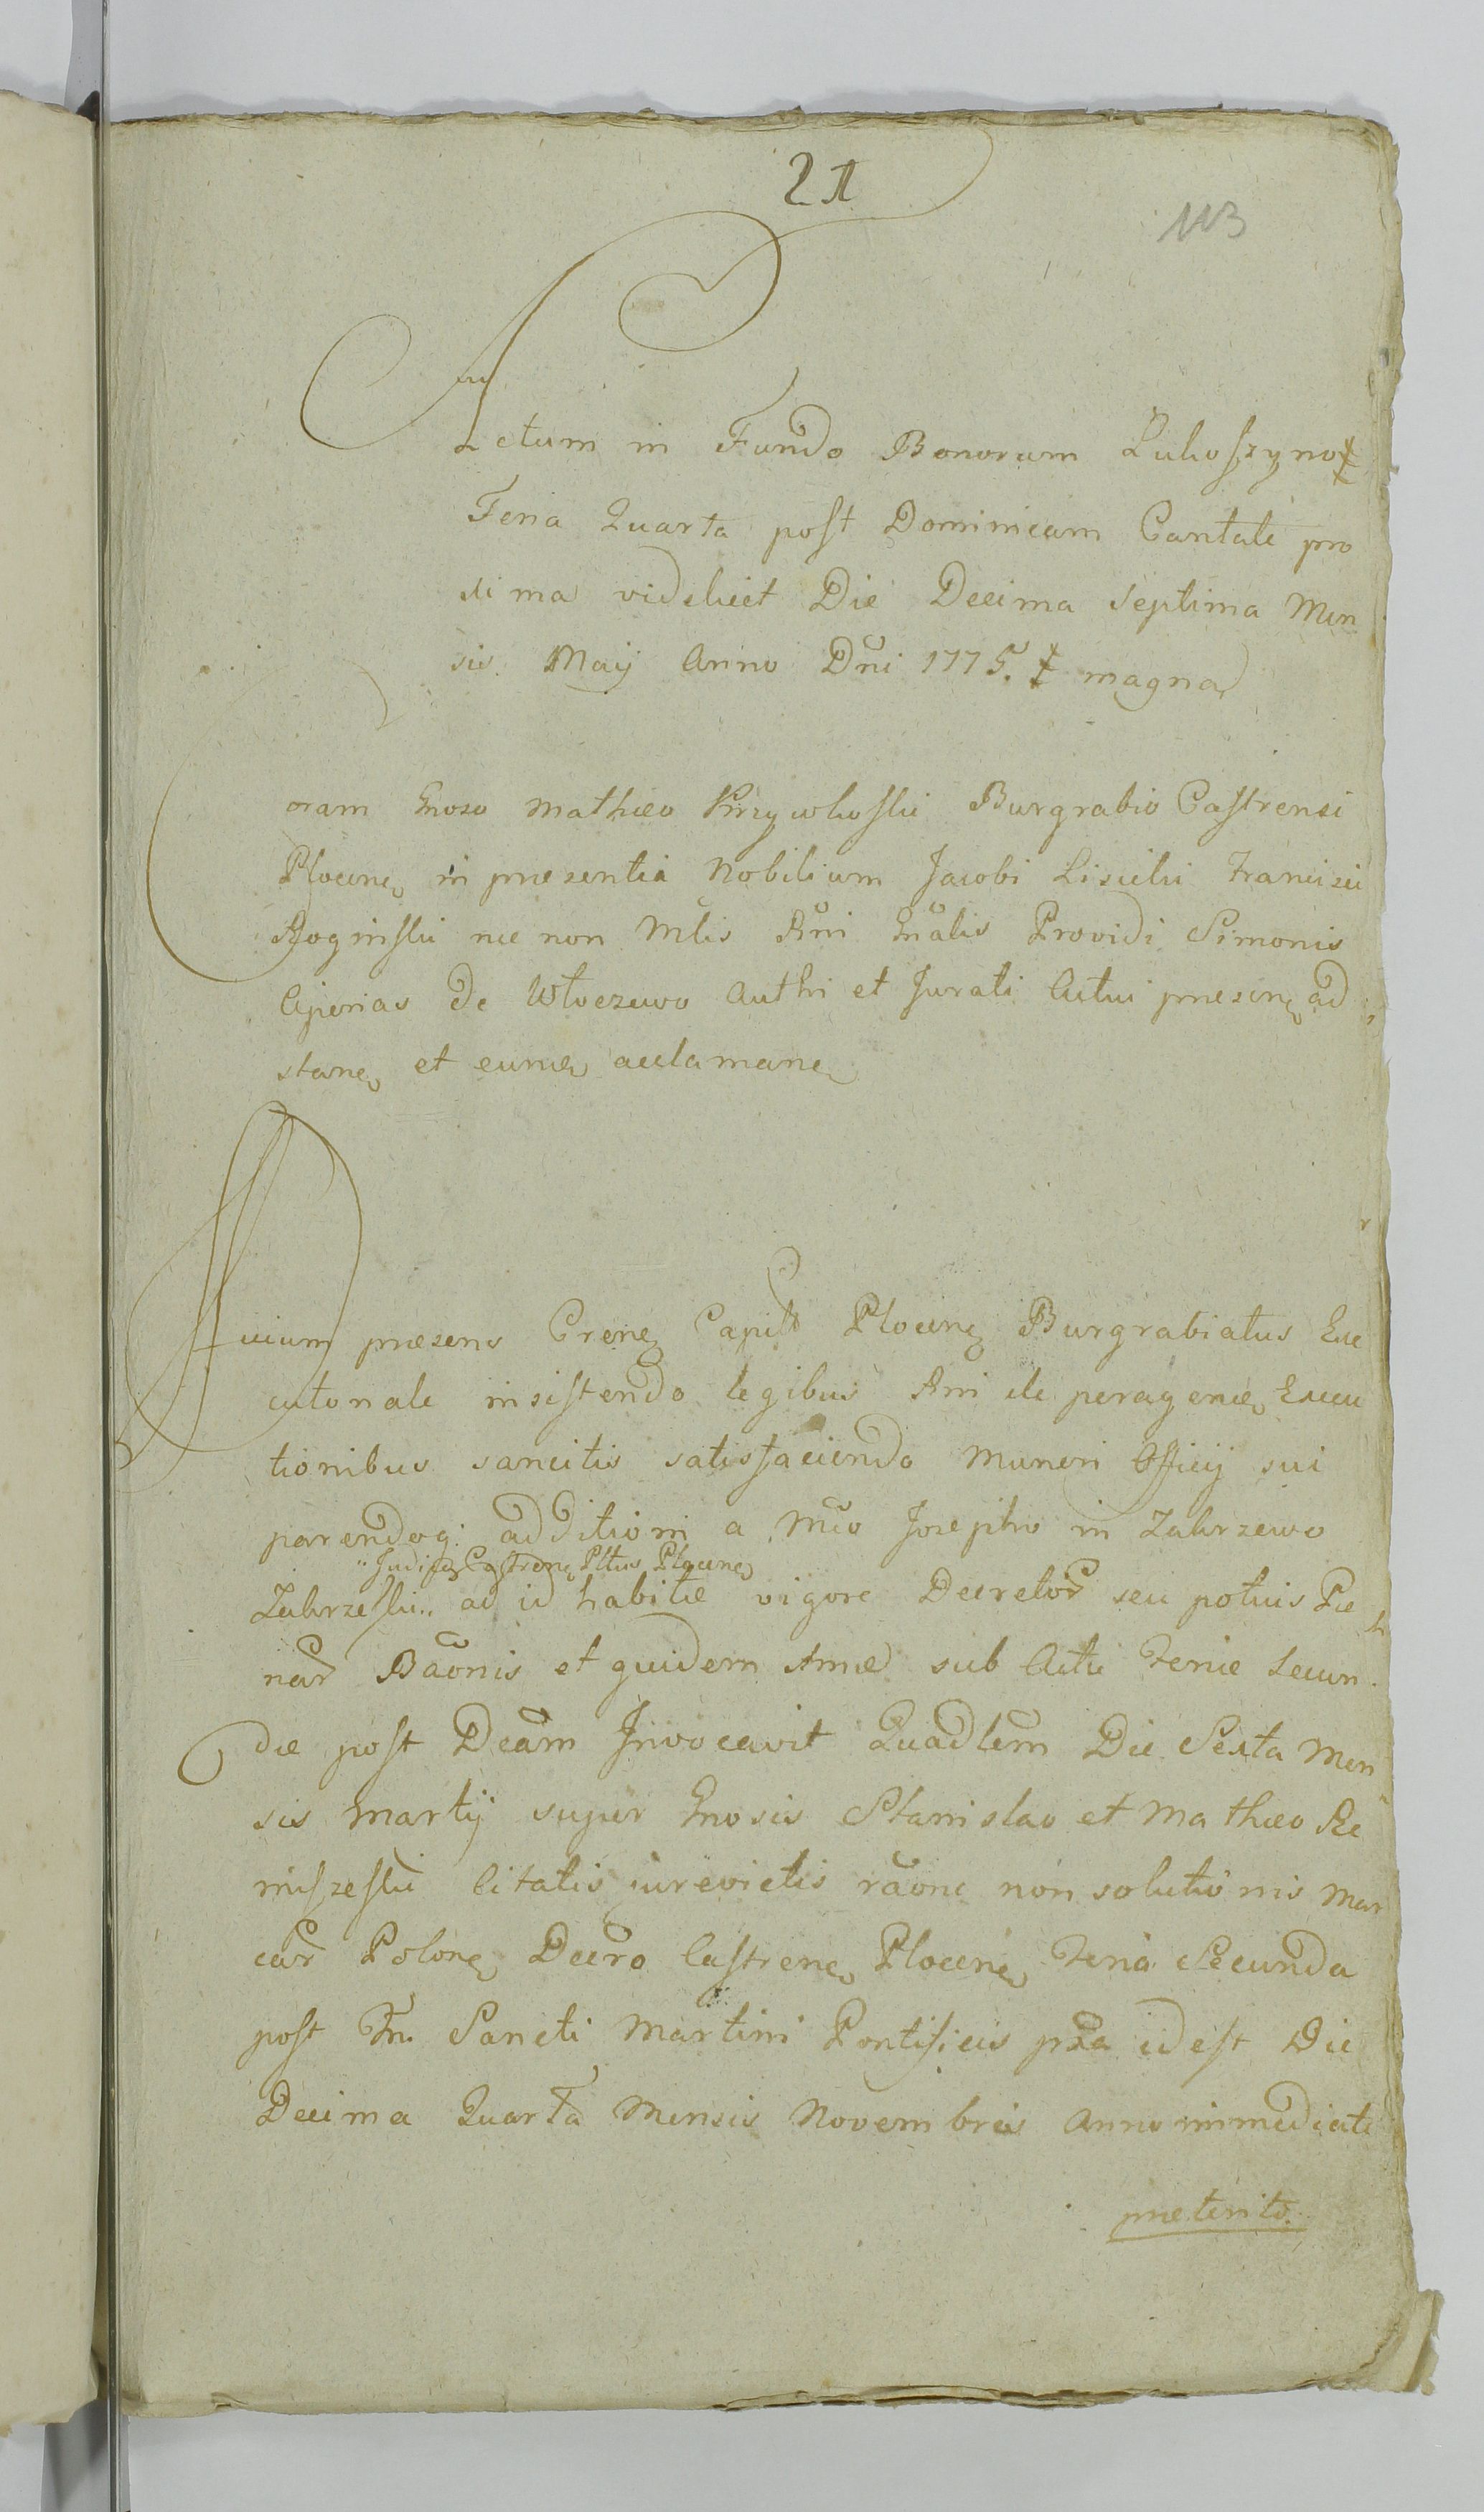 21
113
Actum in Fundo Bonorum Lukoszyno ҂
Feria Quarta post Dominicam Cantate pro
xima videlicet Die Decima Septima Men
sis Maij Anno Dñi 1775. ҂ magna
Coram Gnoso Mathæo Przywkoski Burgrabio Castrensi
Plocen in præsentia Nobilium Jacobi Lisicki Francisci
Roginski nec non Mlis Rni Gnalis Providi Simonis
de Wtoczewo Authi et Jurati Actui præsen ad
stan et eund acclaman
præsens Cren Capit Plocen Burgrabiatus Exe
cutoriale insistendo legibus Rni de peragend Execu
tionibus sancitis satisfaciendo Muneri Officij sui
parendoq: additioni a Mco Josepho in Zakrzewo
Judice Castren Pltus Plocen
Zakrzeski ad id habitæ vigore Decretor seu potius Pæ
nar Baonis et quidem Amæ sub Actu Feriæ Secun
dæ post Dcam Invocavit Quadlem Die Sexta Men
sis Martij super Gnosis Stanislao et Mathæo Re
miszeski Citatis jurevictis raone non solutionis Mar
car Polon Decro Castren Plocen Feria Secunda
post Fm Sancti Martini Pontificis pxa id est Die
Decima Quarta Mensis Novembris Anno immediate
præterito.